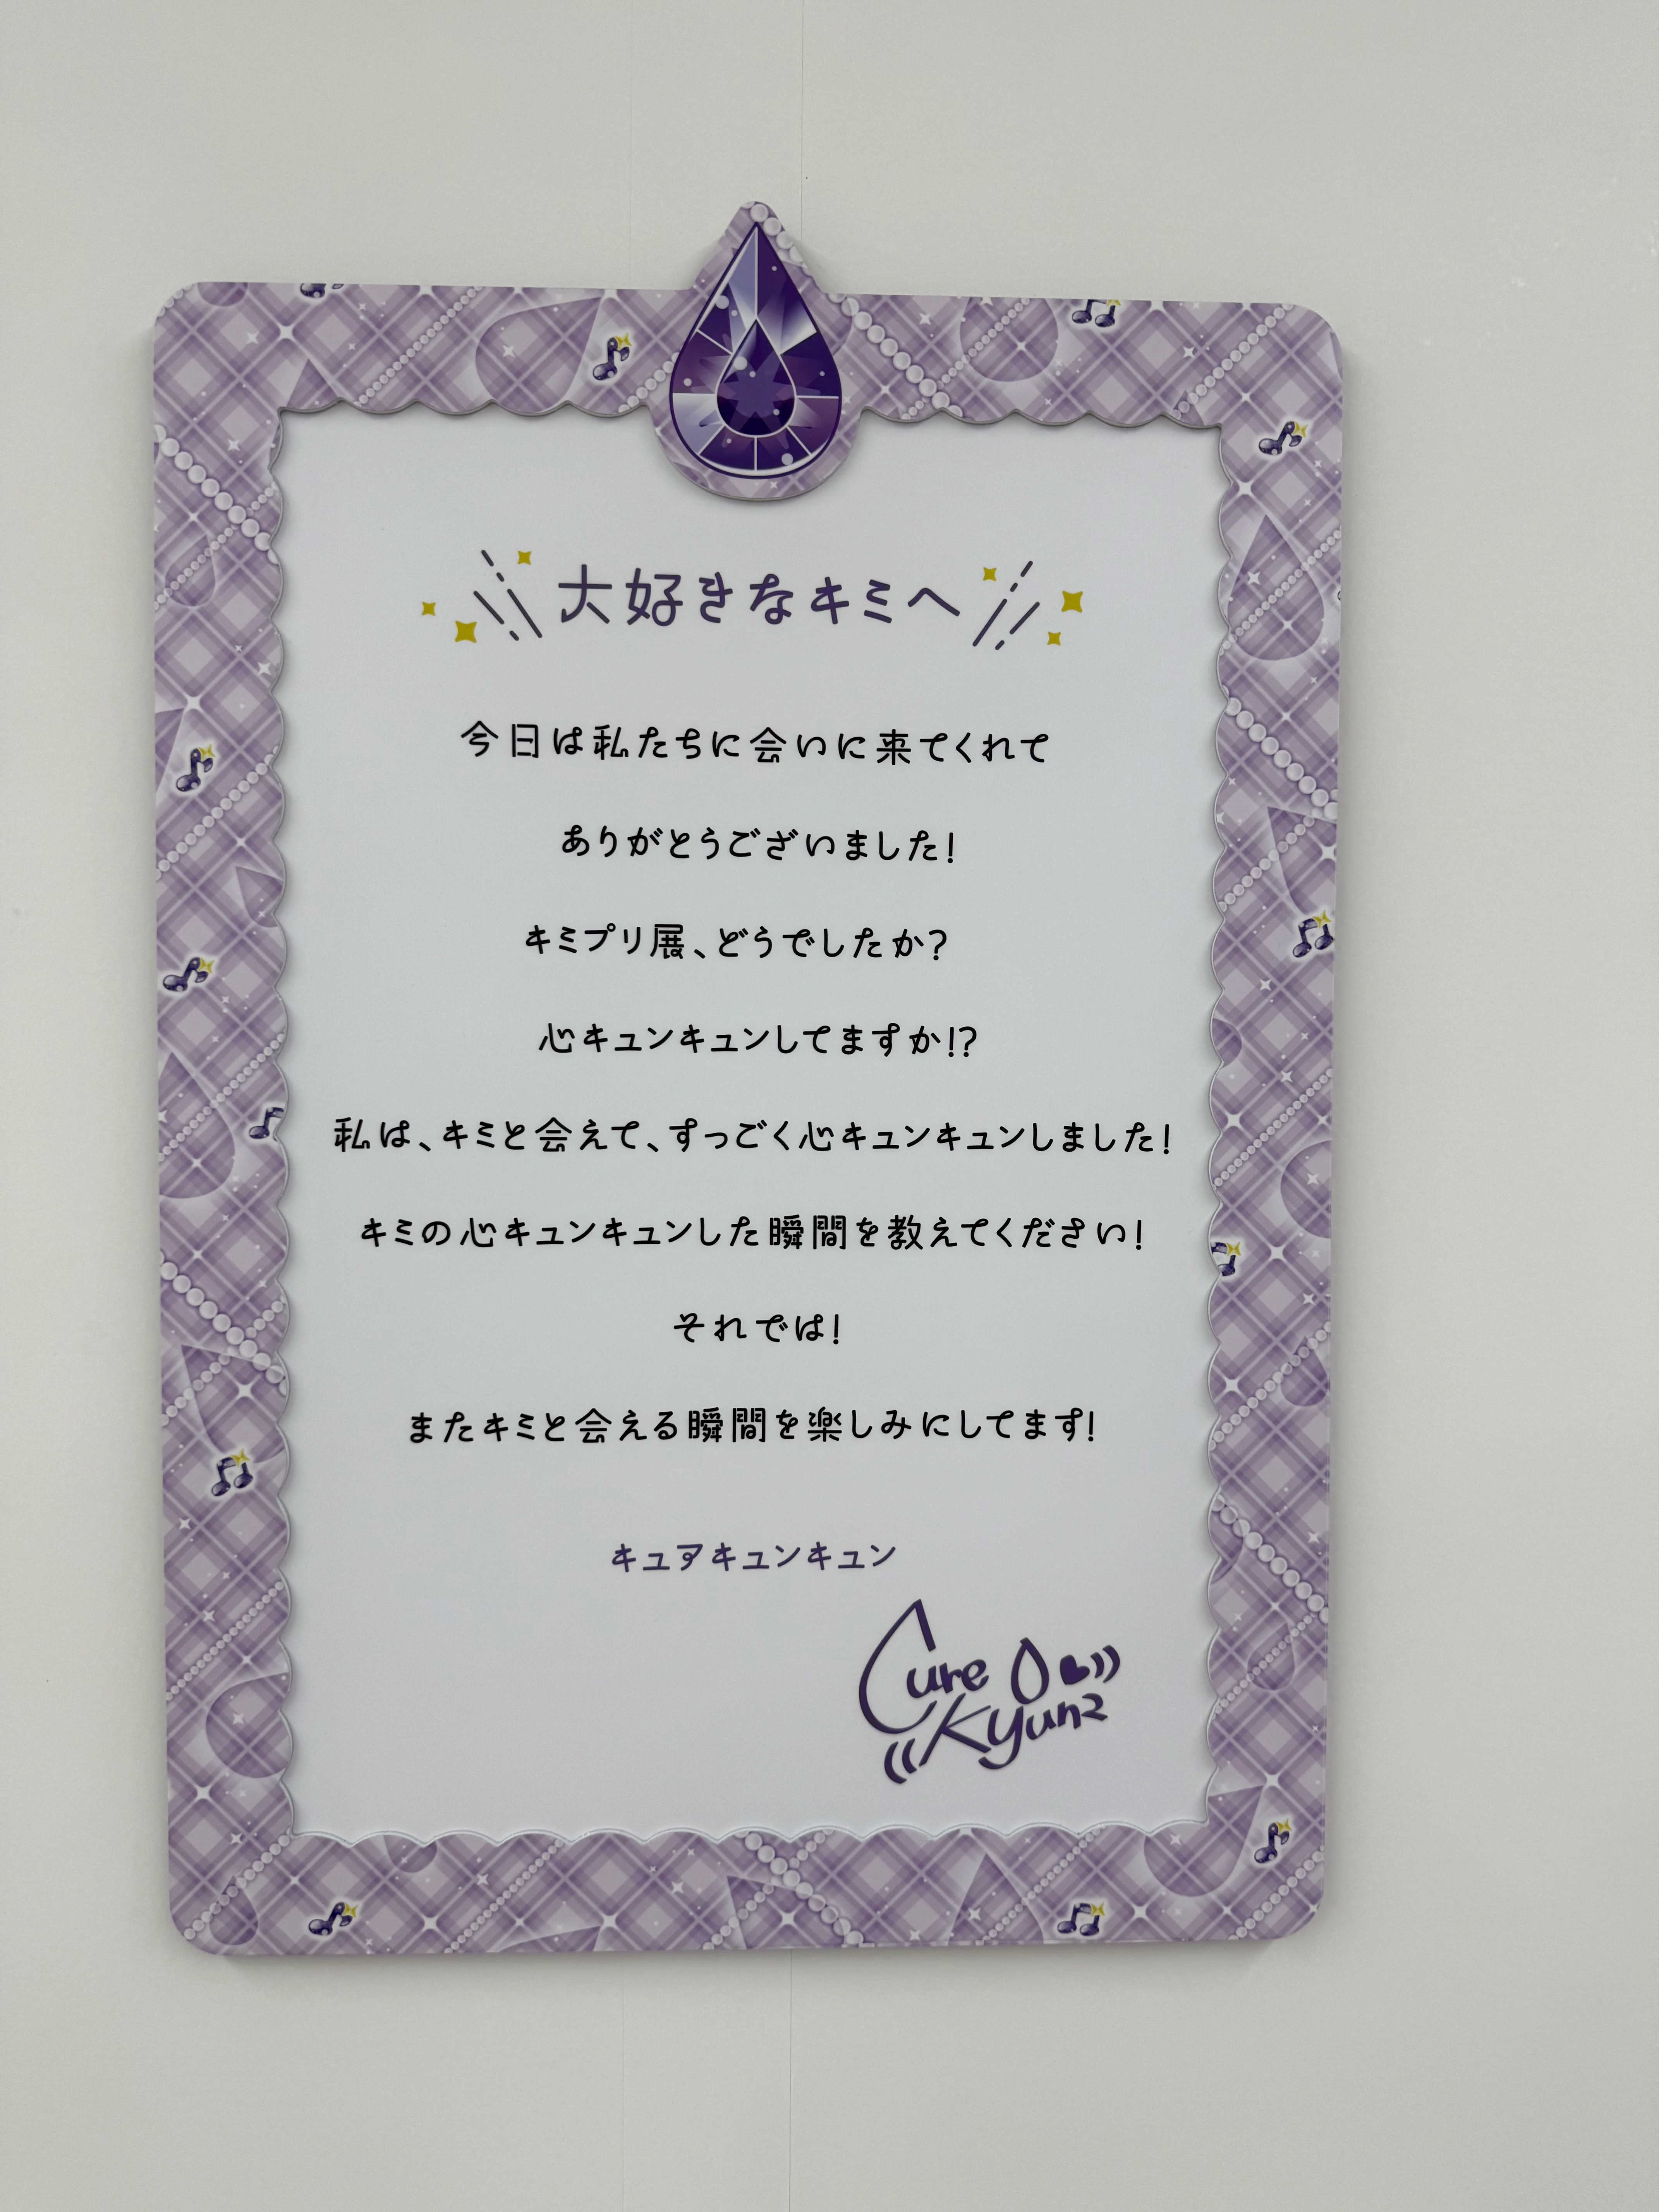 大好きなキミへ
今日は私たちに会いに来てくれて
ありがとうございました!
キミプリ展、どうでしたか?
心キュンキュンしてますか!?
私は、キミと会えて、すっごく心キュンキュンしました!
キミの心キュンキュンした瞬間を教えてください!
それでは!
またキミと会える瞬間を楽しみにしてます!
キュアキュンキュン
Cure
Kyun2